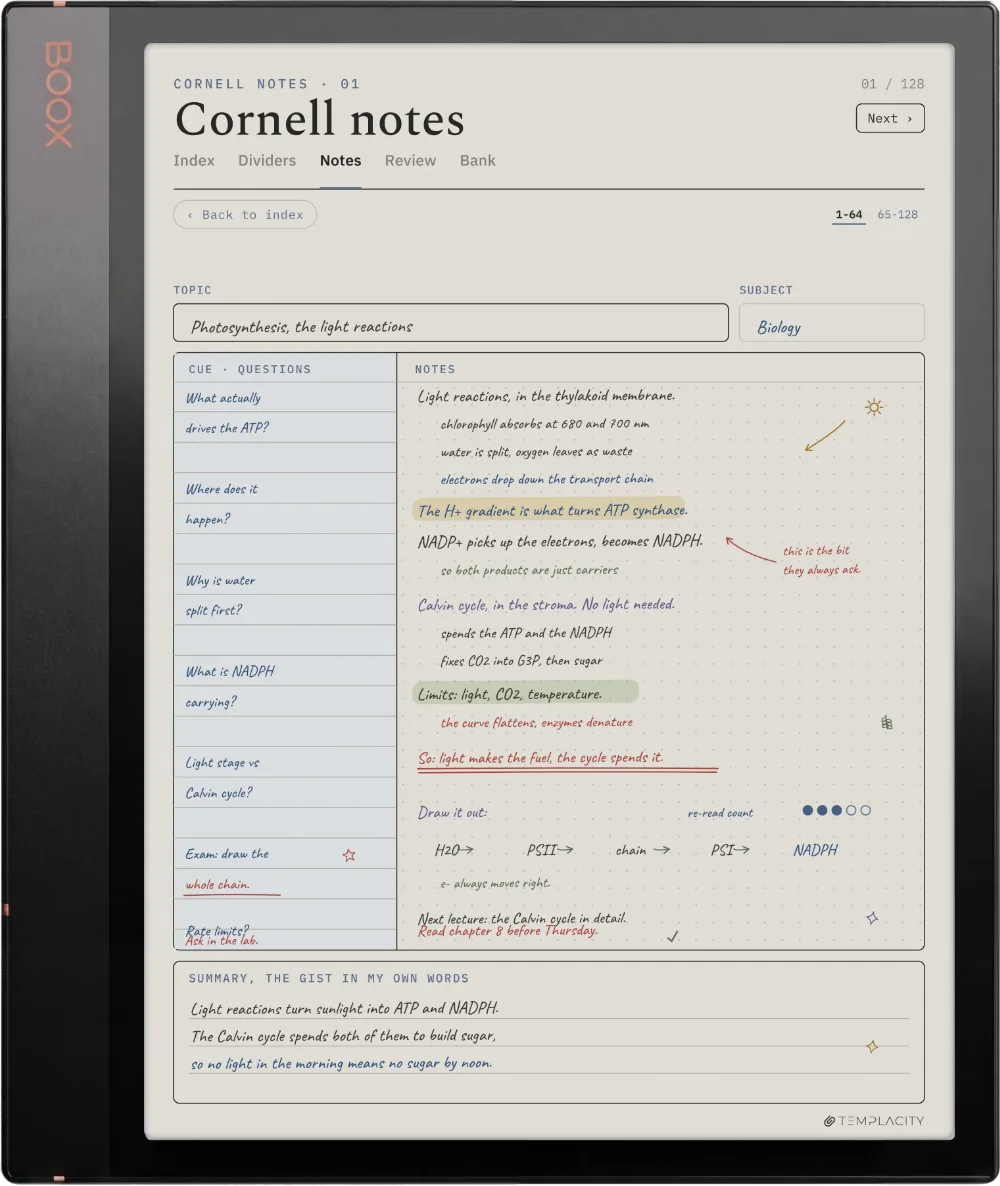 BOOX
CORNELL NOTES · 01
01 / 128
Cornell notes
Next ›
Index Dividers Notes Review Bank
‹ Back to index
1-64 65-128
TOPIC
SUBJECT
Photosynthesis, the light reactions
Biology
CUE · QUESTIONS
What actually
drives the ATP?
Where does it
happen?
Why is water
split first?
What is NADPH
carrying?
Light stage vs
Calvin cycle?
Exam: draw the
whole chain.
Rate limits?
Ask in the lab.
NOTES
Light reactions, in the thylakoid membrane.
chlorophyll absorbs at 680 and 700 nm
water is split, oxygen leaves as waste
electrons drop down the transport chain
The H+ gradient is what turns ATP synthase.
NADP+ picks up the electrons, becomes NADPH.
this is the bit
they always ask
so both products are just carriers
Calvin cycle, in the stroma. No light needed.
spends the ATP and the NADPH
fixes CO2 into G3P, then sugar
Limits: light, CO2, temperature.
the curve flattens, enzymes denature
So: light makes the fuel, the cycle spends it.
Draw it out:
re-read count
H2O→ PSII→ chain → PSI→ NADPH
e- always moves right.
Next lecture: the Calvin cycle in detail.
Read chapter 8 before Thursday.
SUMMARY, THE GIST IN MY OWN WORDS
Light reactions turn sunlight into ATP and NADPH.
The Calvin cycle spends both of them to build sugar,
so no light in the morning means no sugar by noon.
TEMPLACITY